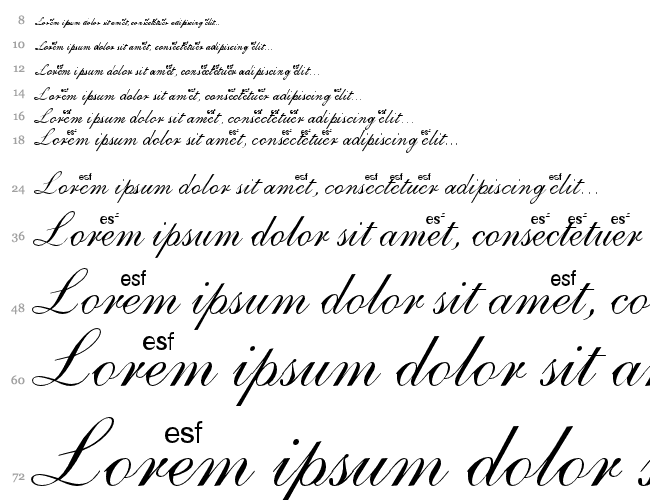 8 Lorem ipsum dolor sit amet, consectetuer adipiscing elit...
10 Lorem ipsum dolor sit amet, consectetuer adipiscing elit...
12 Lorem ipsum dolor sit amet, consectetuer adipiscing elit...
14 Lorem ipsum dolor sit amet, consectetuer adipiscing elit...
16 Lorem ipsum dolor sit amet, consectetuer adipiscing elit...
esf esf esf esf esf esf
18 Lorem ipsum dolor sit amet, consectetuer adipiscing elit...
esf esf esf esf esf esf
24 Lorem ipsum dolor sit amet, consectetuer adipiscing elit...
esf esf esf esf esf
36 Lorem ipsum dolor sit amet, consectetuer
esf esf
48 Lorem ipsum dolor sit amet, co
esf
60 Lorem ipsum dolor sit a
esf
72 Lorem ipsum dolor